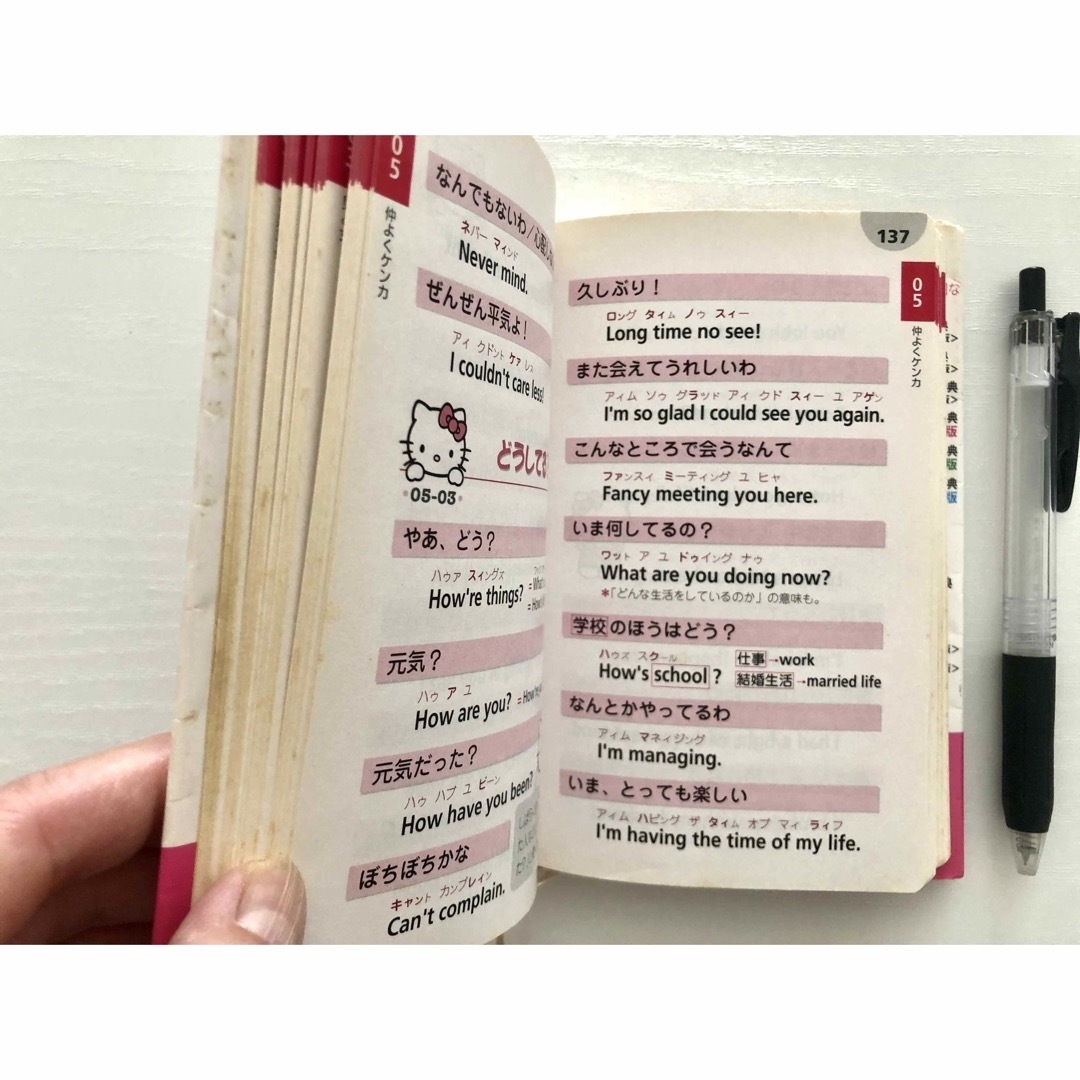 05
仲よくケンカ
なんでもないわ/心配し
ネバー マィンド
Never mind.
ぜんぜん平気よ!
アィ クドント ケァ レス
I couldn't care less!
どうしてる
05-03
やあ、どう?
ハゥァ スィングズ
How're things?
元気?
ハゥ ア ユ
How are you?
元気だった?
ハゥ ハブ ユ ビーン
How have you been?
ぼちぼちかな
キャント カンプレイン
Can't complain.
137
05
仲よくケンカ
久しぶり!
ロング タィム ノゥ スィー
Long time no see!
また会えてうれしいわ
アィム ソゥ グラッド アィ クド スィー ユ アゲン
I'm so glad I could see you again.
こんなところで会うなんて
ファンスィ ミーティング ユ ヒャ
Fancy meeting you here.
いま何してるの?
ワット ア ユ ドゥイング ナゥ
What are you doing now?
*「どんな生活をしているのか」の意味も。
学校のほうはどう?
ハゥズ スクール
How's school? 仕事→work
結婚生活→married life
なんとかやってるわ
アィム マネィジング
I'm managing.
いま、とっても楽しい
アィム ハビング ザ タィム オブ マィ ライフ
I'm having the time of my life.